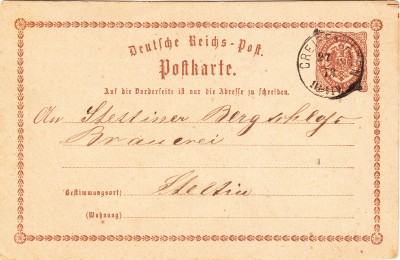 Deutsche Reichs-Post.
Postkarte.
Auf die Vorderseite ist nur die Adresse zu schreiben.
An Stettiner Bergschloß
Brauerei
Bestimmungsort) Stettin
(Wohnung)